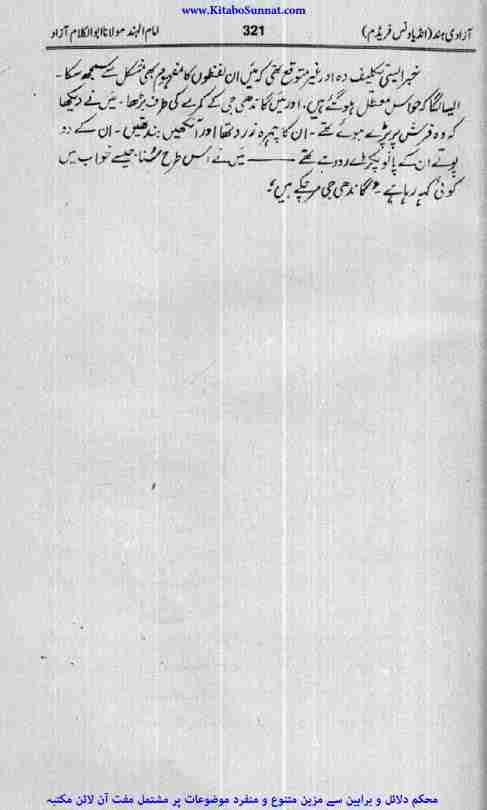 www.KitaboSunnat.com
آزادی ہند (انڈیا ونس فریڈم) 321 امام الہند مولانا ابوالکلام آزاد
خبر ایسی تکلیف دہ اور غیر متوقع تھی کہ میں ان لفظوں کا مفہوم بھی مشکل سے سمجھ سکا۔
ایسا لگا کہ حواس معطل ہو گئے ہیں۔ اور میں گاندھی جی کے کمرے کی طرف بڑھا۔ میں نے دیکھا
کہ وہ فرش پر پڑے ہوئے تھے۔ ان کا چہرہ زرد تھا اور آنکھیں بند تھیں۔ ان کے دو
پوتے ان کے پانو پکڑے رو رہے تھے ——— میں نے اس طرح سنا جیسے خواب میں
کوئی کہہ رہا ہے۔ "گاندھی جی مر چکے ہیں"
محکم دلائل و براہین سے مزین متنوع و منفرد موضوعات پر مشتمل مفت آن لائن مکتبہ